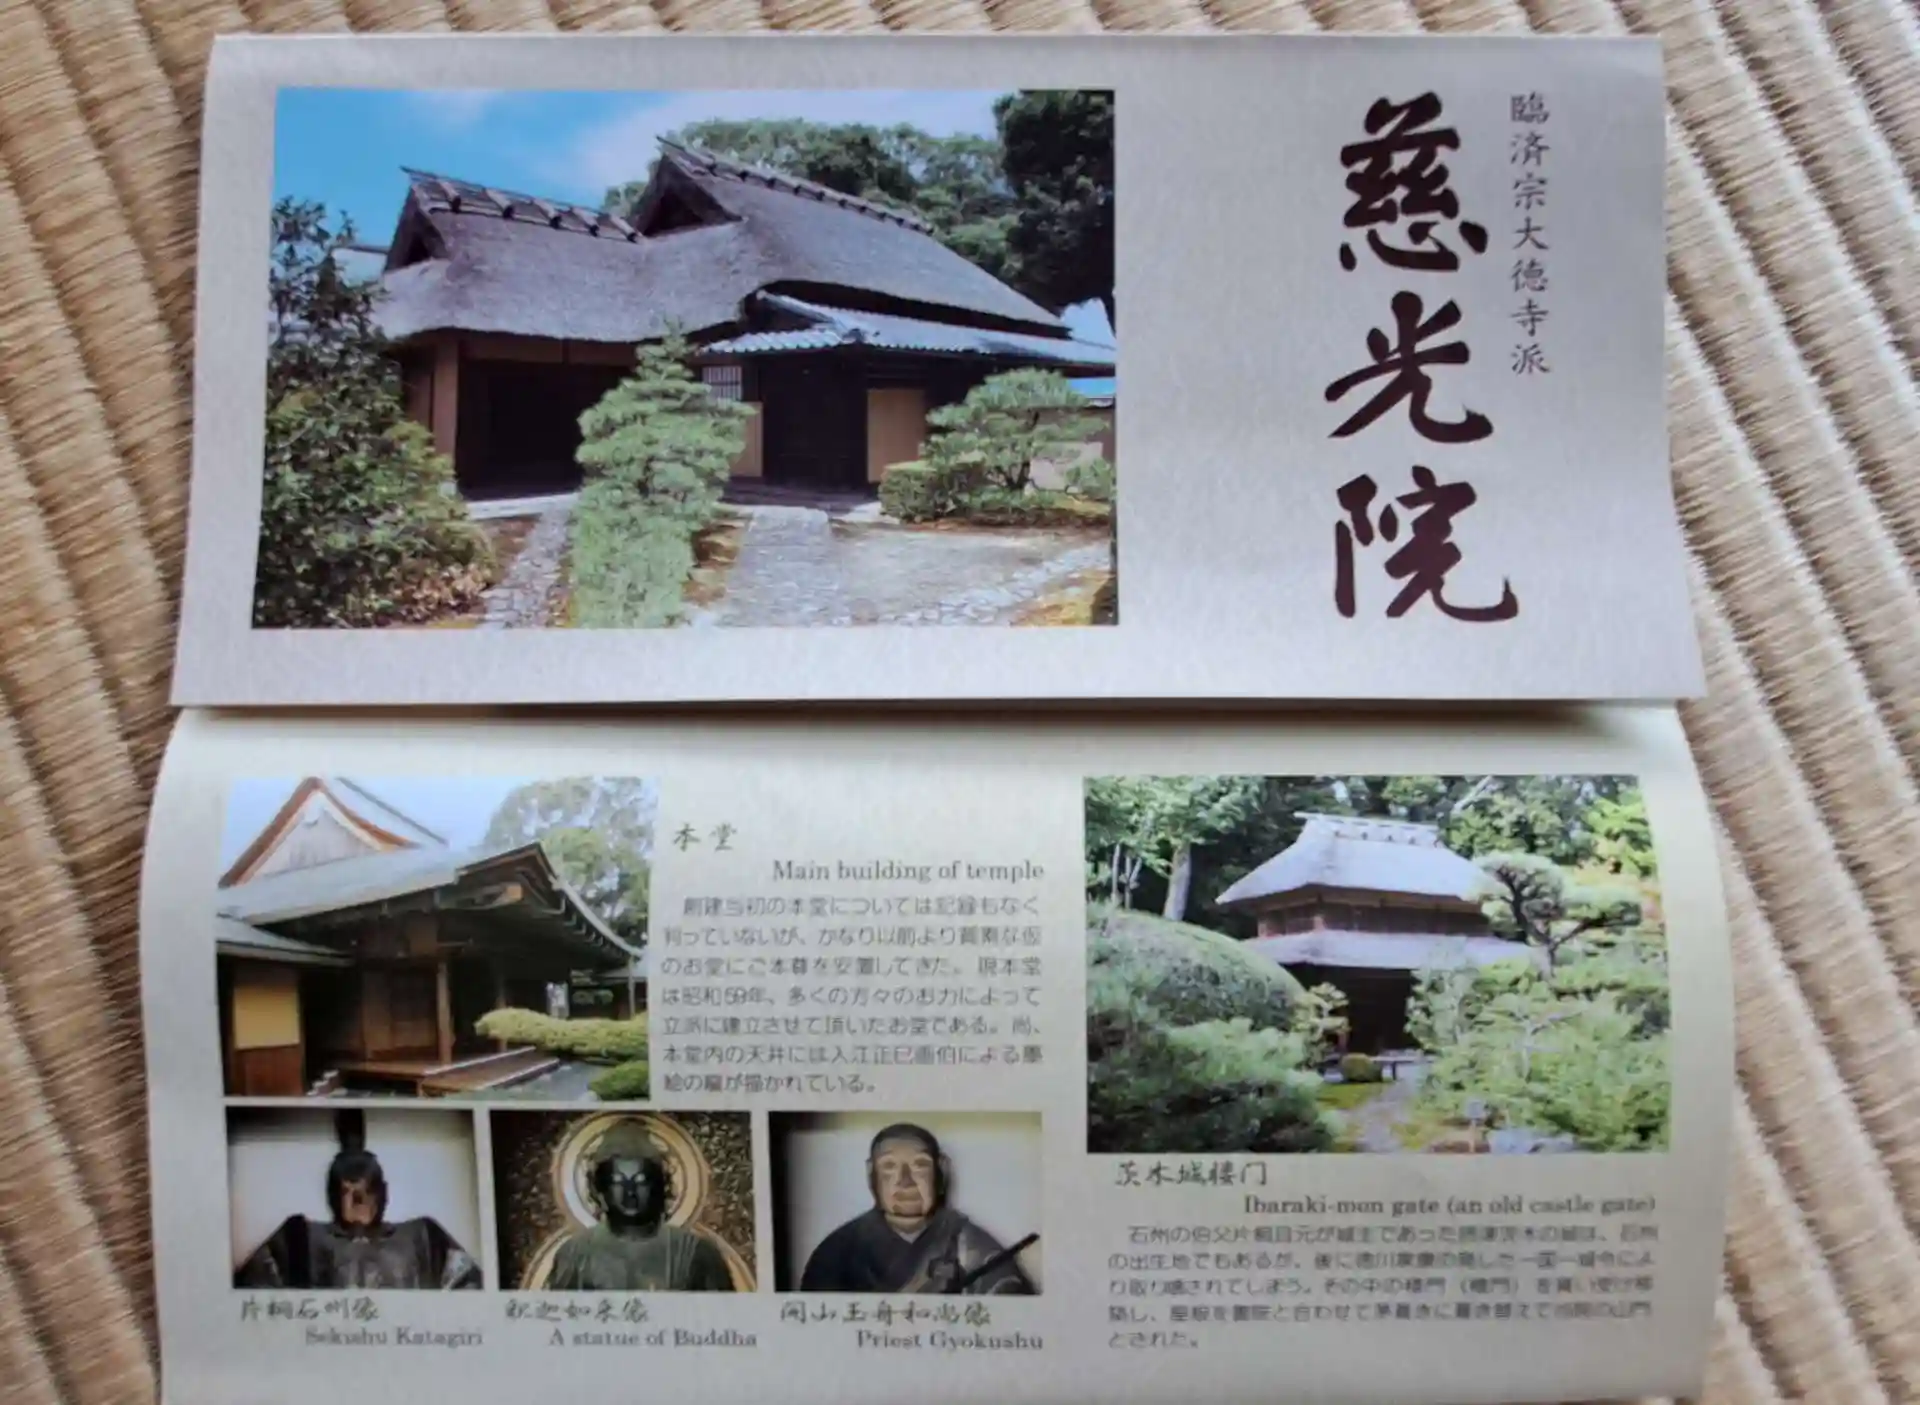 臨済宗大徳寺派
慈光院
本堂
Main building of temple
創建当初の本堂については記録もなく
判っていないが、かなり以前より質素な仮
のお堂にご本尊を安置してきた。現本堂
は昭和59年、多くの方々のお力によって
立派に建立させて頂いたお堂である。尚、
本堂内の天井には入江正巳画伯による墨
絵の龍が描かれている。
片桐石州像
Sekishu Katagiri
釈迦如来像
A statue of Buddha
開山玉舟和尚像
Priest Gyokushu
茨木城楼门
Ibaraki-mon gate (an old castle gate)
石州の伯父片桐且元が城主であった摂津茨木の城は、石州
の出生地でもあるが、後に徳川家康の発した一国一城令によ
り取り壊されてしまう。その中の楼門（櫓門）を貰い受け移
築し、屋根を書院と合わせて茅葺きに葺き替えて当院の山門
とされた。